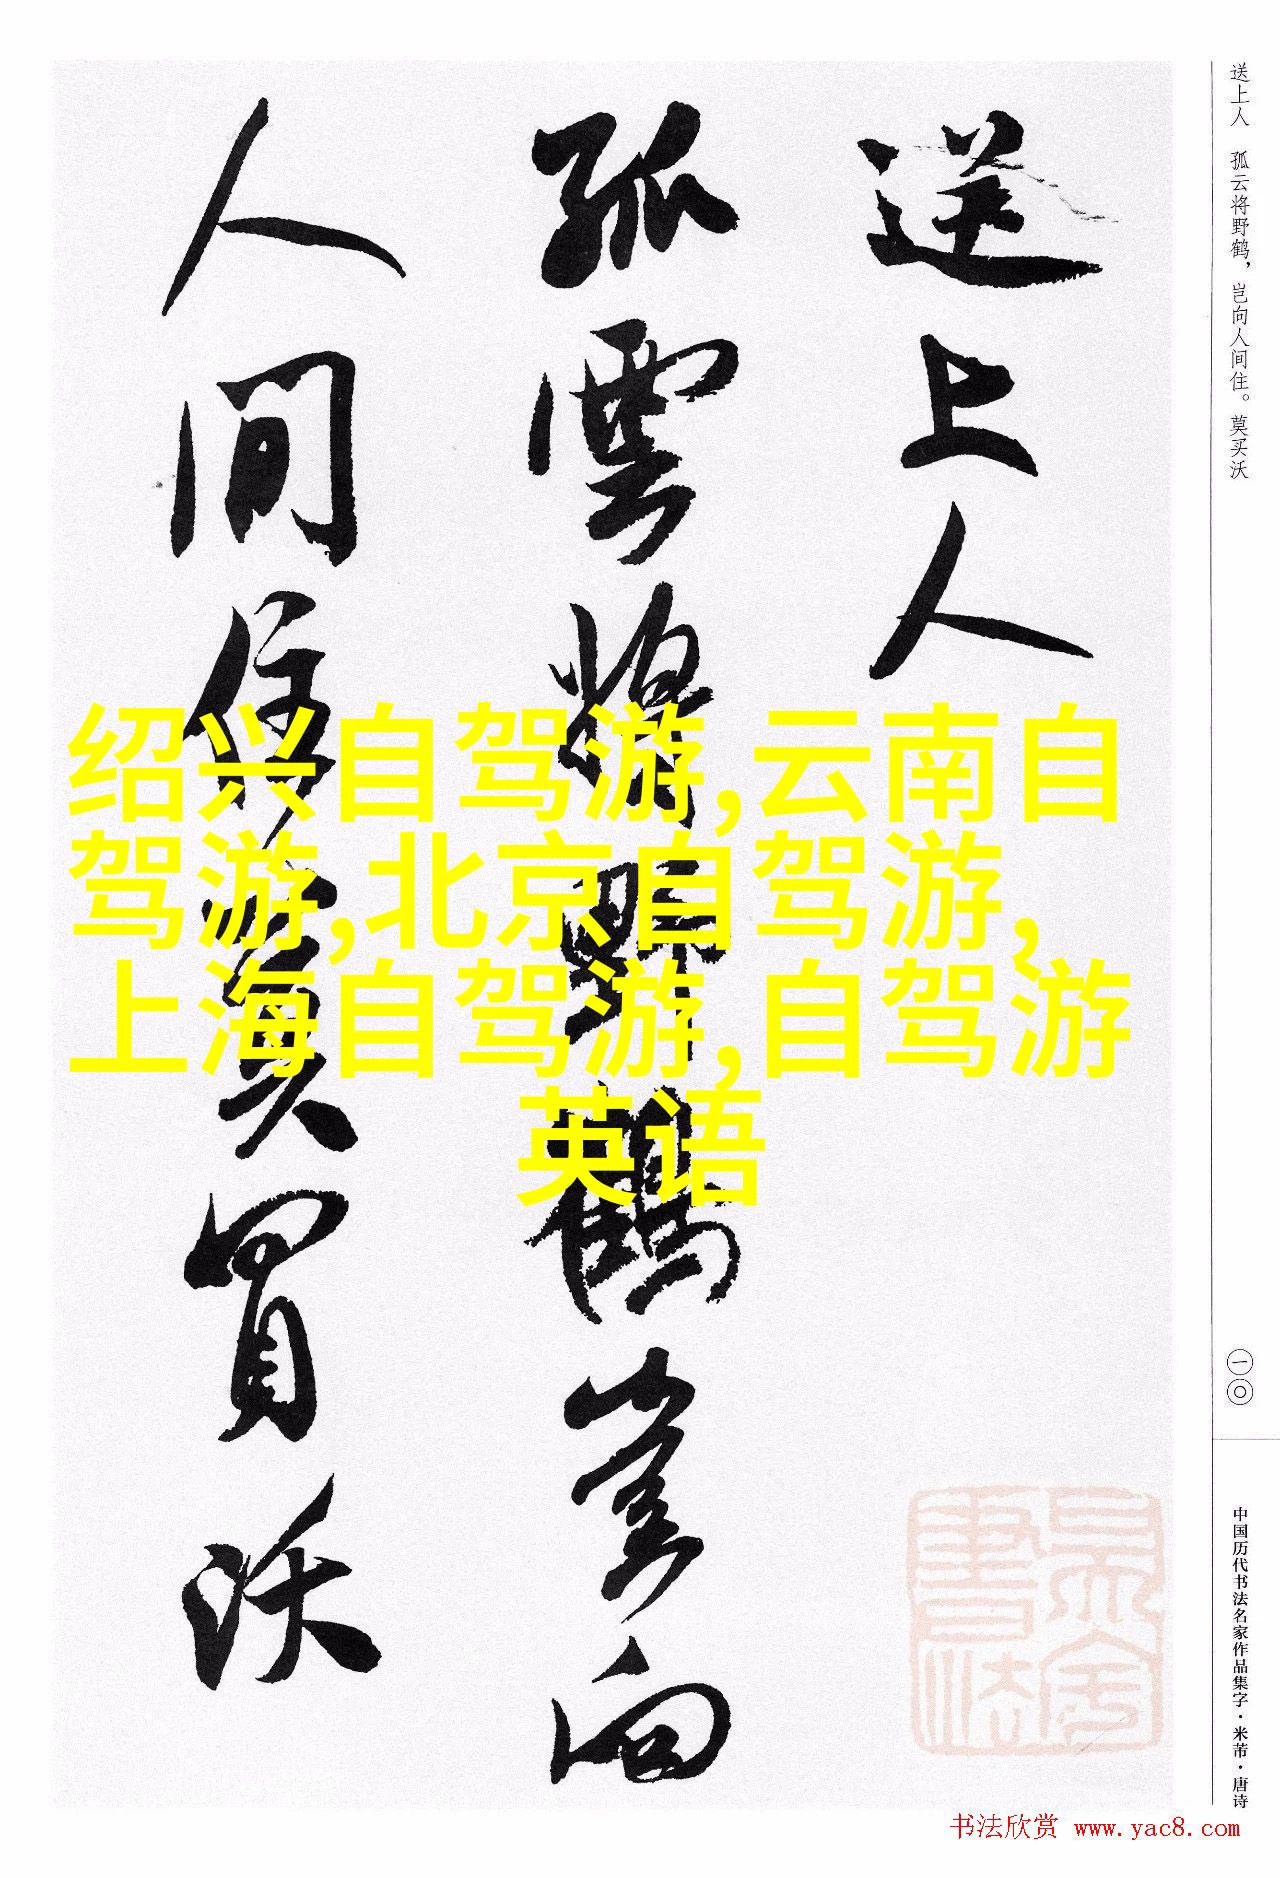 送上人
孤雲將野鶴豈向
人間住莫買沃
绍兴自驾游,云南自
驾游,北京自驾游,
上海自驾游,自驾游
英语
送上人 孤云将野鹤，岂向人间住。莫买沃
一〇
中国历代书法名家作品集字·米芾·唐诗
书法欣赏 www.yac8.com